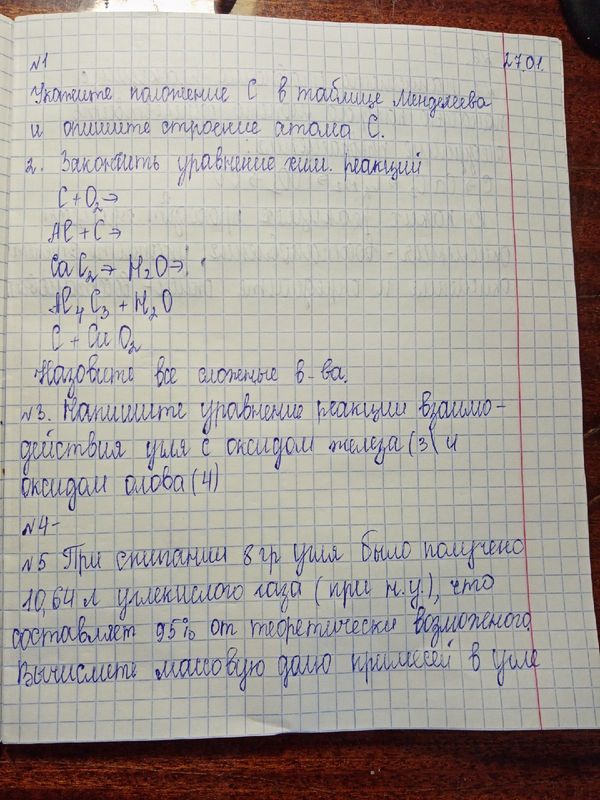 №1 27.01.
Укажите положение С в таблице Менделеева
и опишите строение атома С.
2. Закончить уравнение хим. реакций
C + O₂ →
Al + C →
CaC₂ + H₂O →
Al₄C₃ + H₂O
C + CuO₂
Назовите все сложные в-ва.
№3. Напишите уравнение реакции взаимо-
действия угля с оксидом железа (3( и
оксидом олова (4)
№4-
№5 При сжигании 8 гр угля было получено
10,64 л углекислого газа (при н.у.), что
составляет 95% от теоретически возможеного.
Вычислите массовую долю примесей в угле